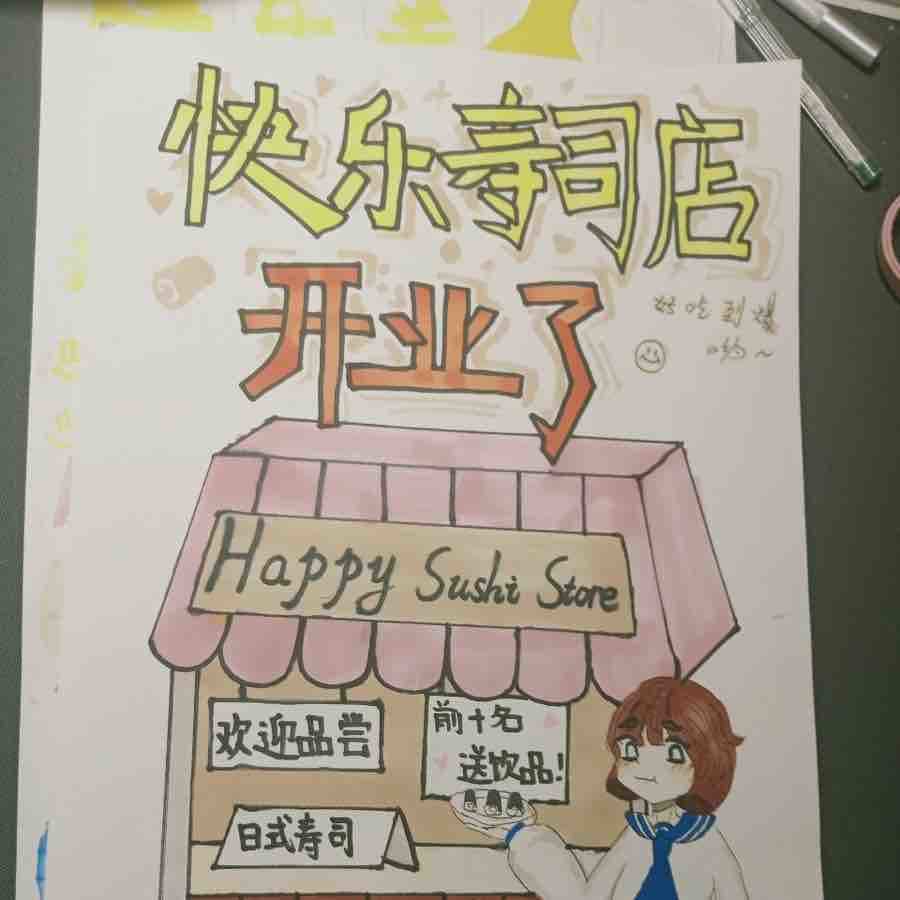 快乐寿司店
开业了
好吃到爆
哟~
Happy Sushi Store
欢迎品尝
前十名
送饮品!
日式寿司